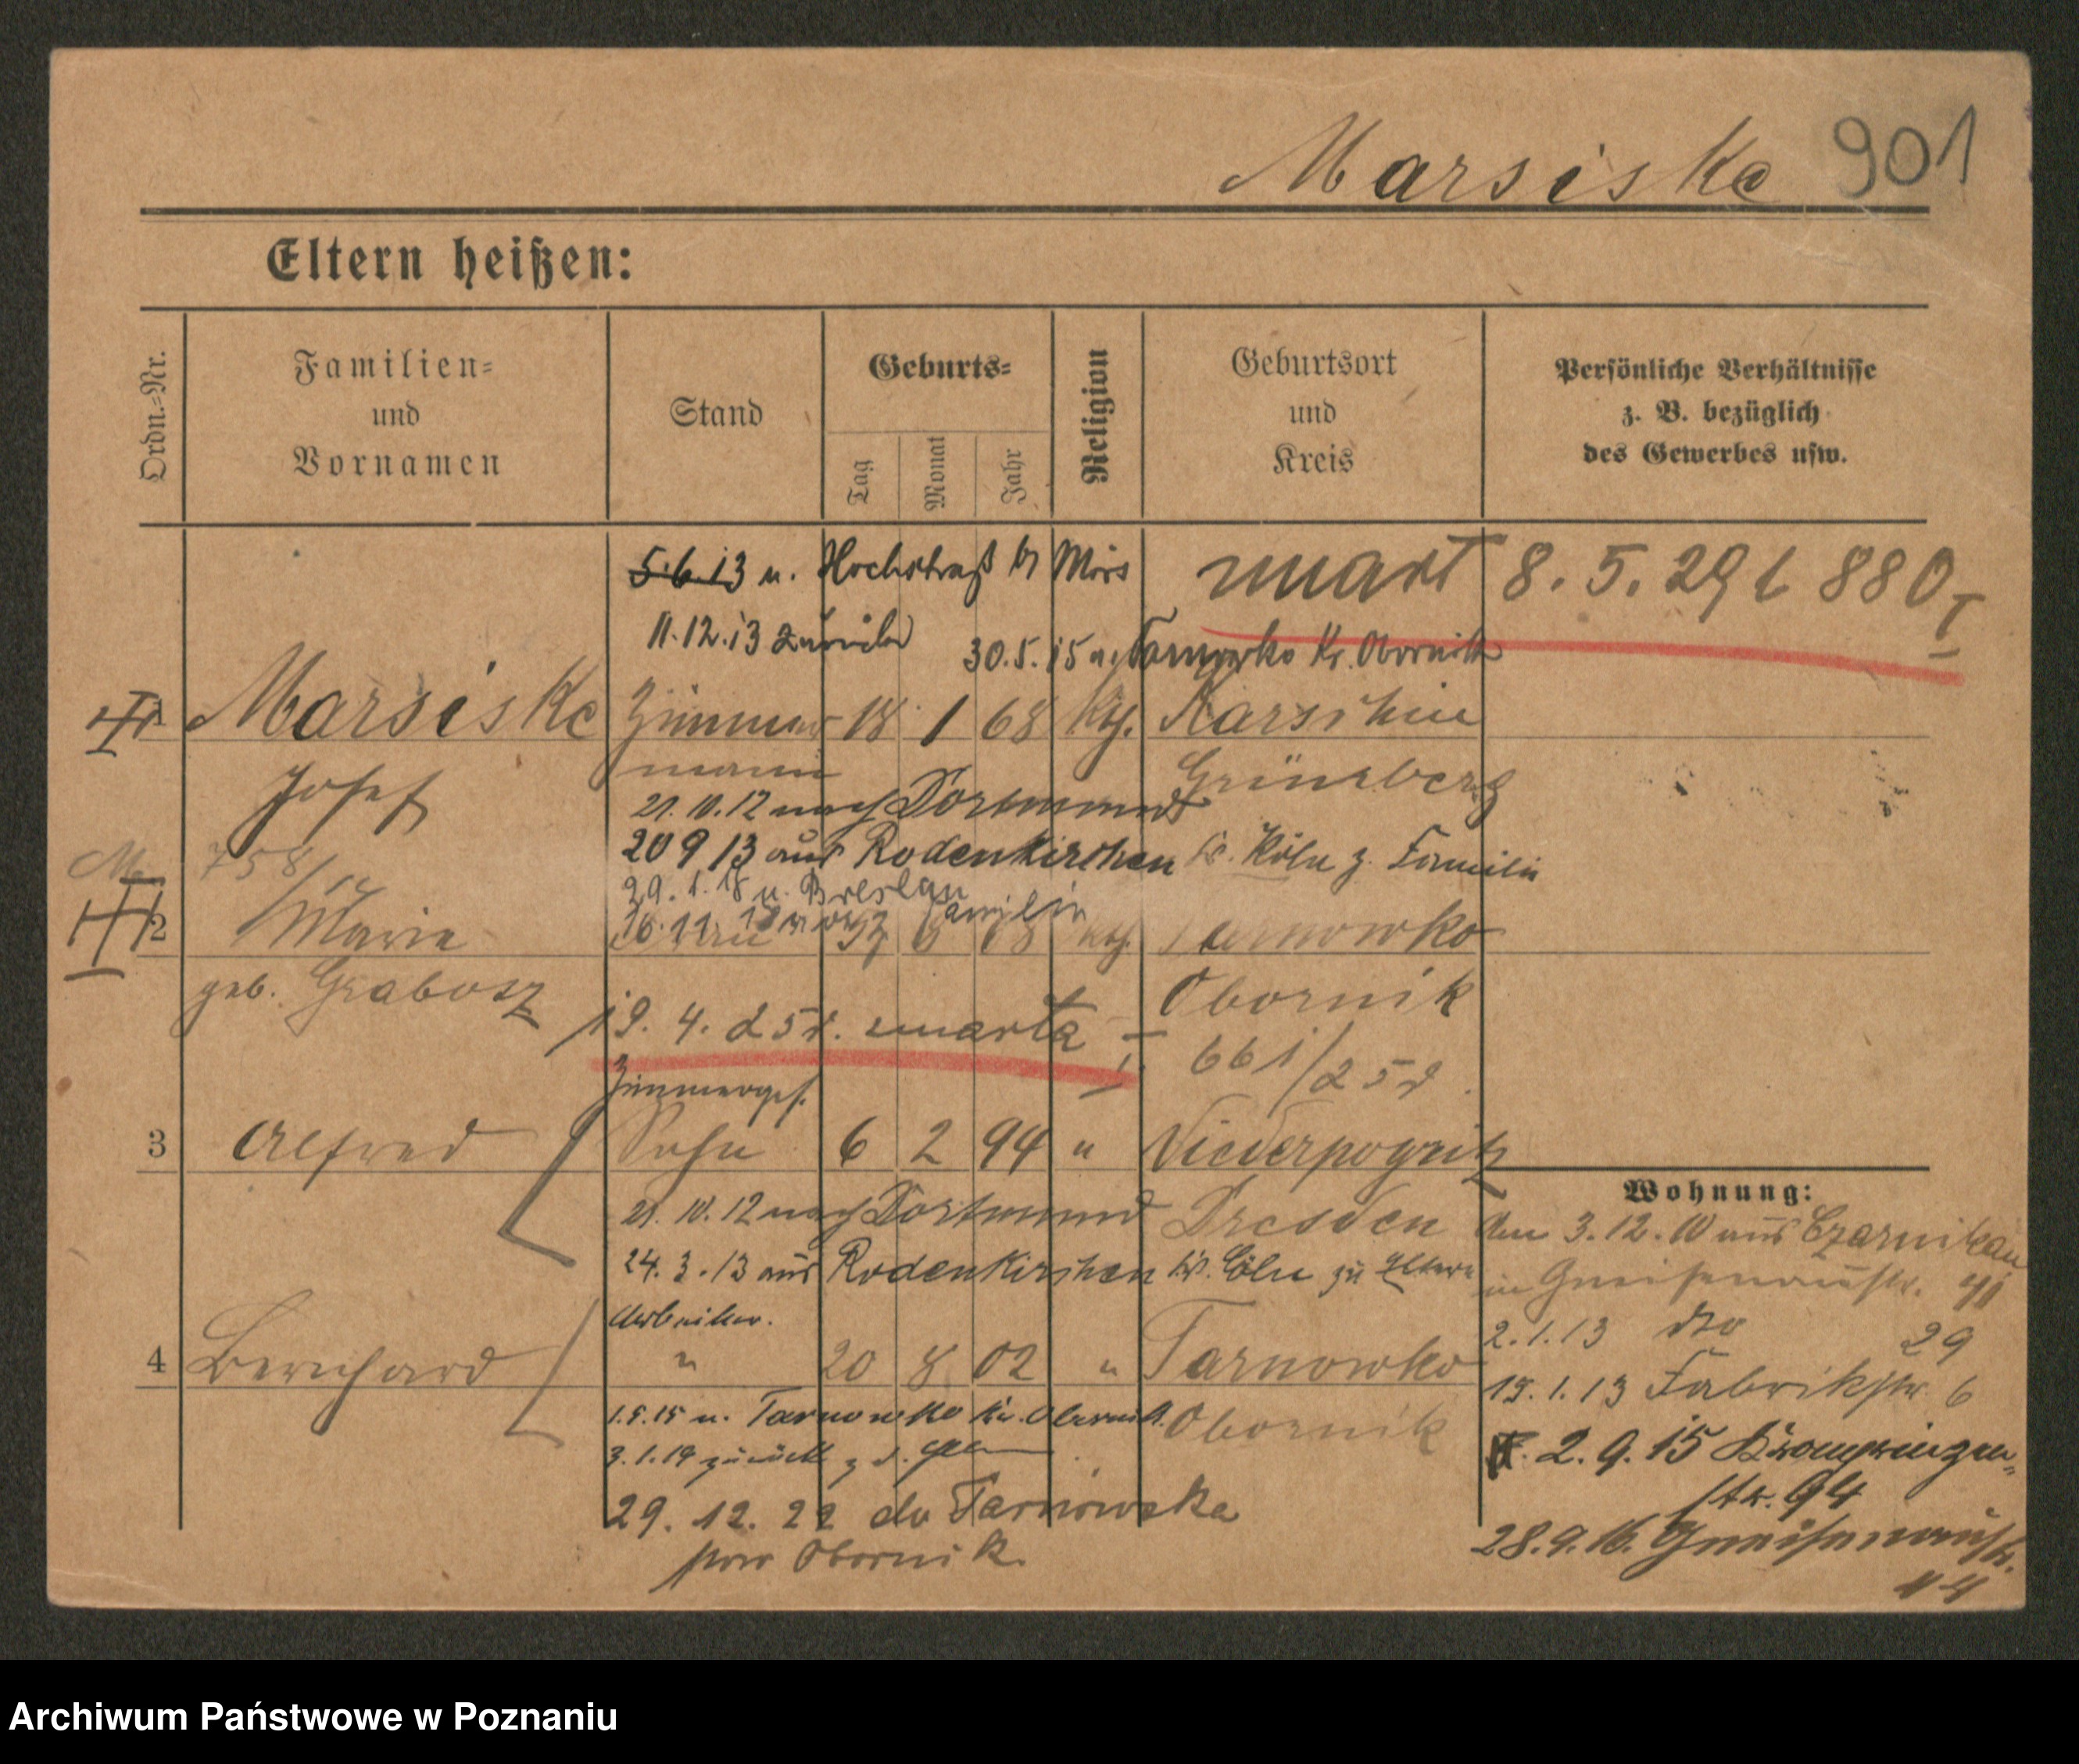 Marsiske 901
Eltern heißen:
Ordn.=Nr.
Familien=
und
Vornamen
Stand
Geburts=
Tag
Monat
Jahr
Religion
Geburtsort
und
Kreis
Persönliche Verhältnisse
z. B. bezüglich
des Gewerbes usw.
5.6.13 n. Hochstraß b/ Mörs
zmarł 8.5.29 r 880
11.12.13 zurück
30.5.15 n. Tarnowko Kr. Obornik
1 Marsiske Zimmer- 18 1 68 kth.
Josef
mann
Grünberg
21.10.12 nach Dortmund
20 9 13 aus Rodenkirchen Kr. Köln z. Familie
758/
29.1.18 n. Breslau
2 Marie
kth. Tarnowko
geb. Grabosz
Obornik
19.4.25r. zmarła
661/25r
Zimmerges.
3 Alfred Sohn 6 2 94 "
Dresden
21.10.12 nach Dortmund
24.3.13 aus Rodenkirchen Kr. Cöln zu Eltern
Arbeiter.
4 Bernhard " 20 8 02 " Tarnowko
Obornik
1.5.15 n. Tarnowko Kr. Obornik
3.1.19 zurück z. d.
29.12.22 do Tarnowka
pow Obornik
Wohnung:
Am 3.12.10 aus Czarnikau
in Gneisenaustr.
2.1.13 dto 29
15.1.13 Fabrikstr. 6
2.9.15 Kronprinzen=
str. 94
28.9.16. Gneisenaustr.